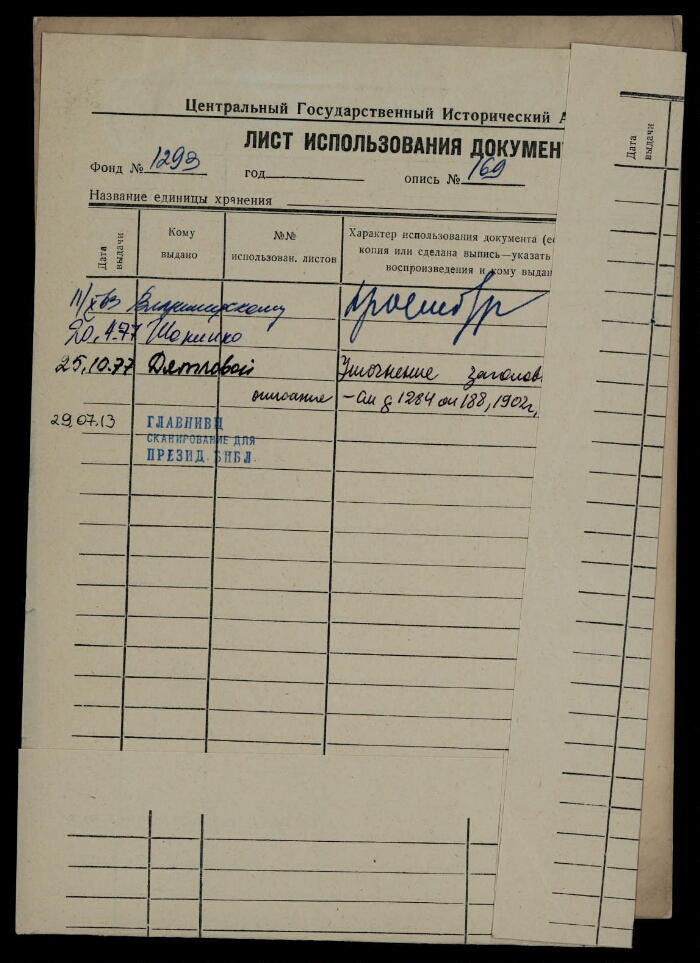 Центральный Государственный Исторический А
ЛИСТ ИСПОЛЬЗОВАНИЯ ДОКУМЕН
Фонд № 1293 год опись № 169
Название единицы хранения
Дата выдачи
Кому выдано
№№ использован. листов
Характер использования документа (ес
копия или сделана выпись—указать
воспроизведения и кому выдан
Дата выдачи
11/X 63 Владимирскому просмотр
20.4.77
25.10.77 Дятловой Уточнение заголов
описание – см ф 1284 оп 188, 1902г,
29.07.13 ГЛАВНИВЦ
СКАНИРОВАНИЕ ДЛЯ
ПРЕЗИД. БИБЛ.